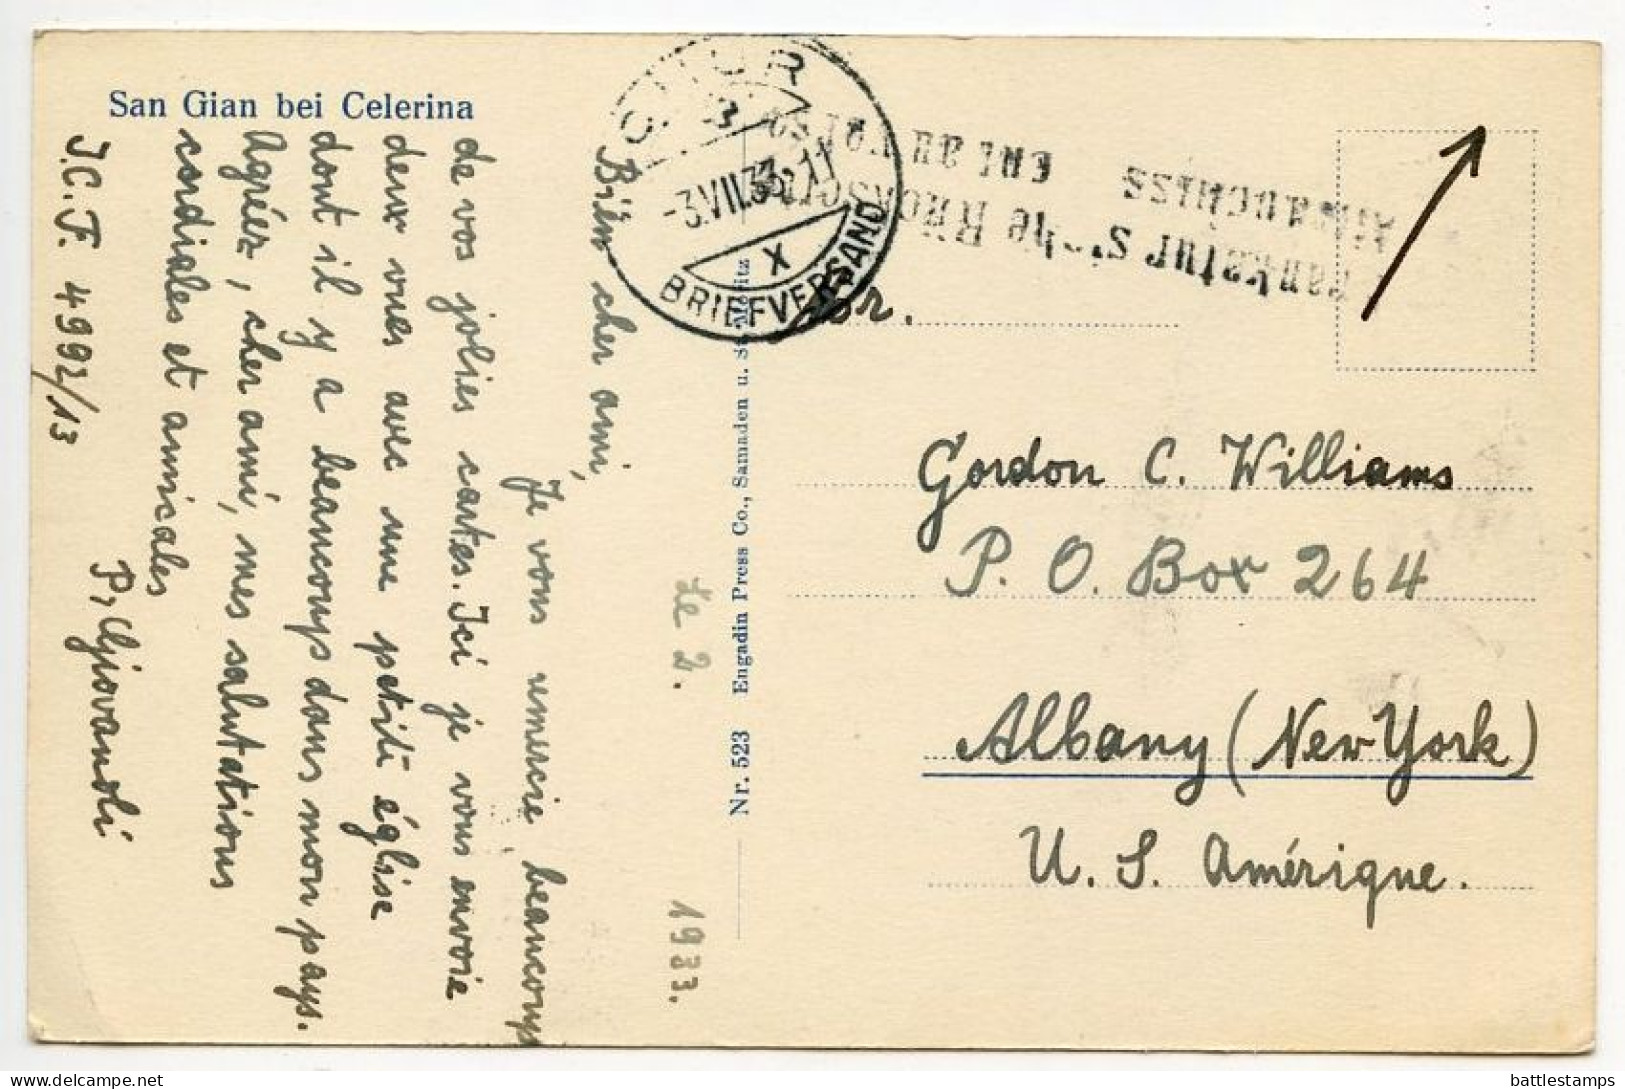 San Gian bei Celerina
Bien cher ami,
Je vous remercie beaucoup
de vos jolies cartes. Ici je vous envoie
deux vues avec une petite église
dont il y a beaucoup dans mon pays.
Agréez, cher ami, mes salutations
cordiales et amicales
P. Giovanoli
J.C.F. 4992/13
Le 2.
1933.
Nr. 523 Engadin Press Co., Samaden u. St. Moritz
CHUR
BRIEFVERSAND
X
Frankatur siehe Rückseite
Affranchiss
ent au verso
Gordon C. Williams
P. O. Box 264
Albany (New York)
U. S. Amérique.
battlestamps